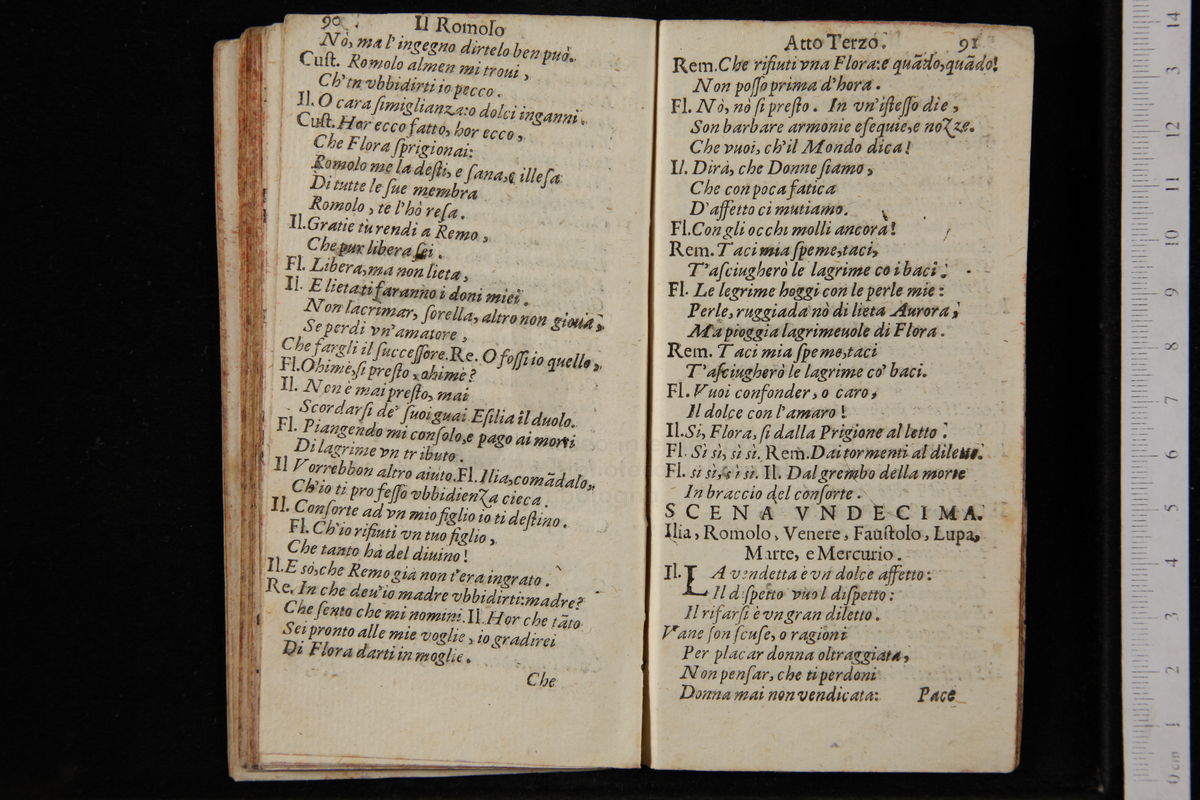 90 Il Romolo
Nò, ma l'ingegno dirtelo ben può.
Cust. Romolo almen mi troui,
Ch'in vbbidirti io pecco.
Il. O cara simiglianza: o dolci inganni.
Cust. Hor ecco fatto, hor ecco,
Che Flora sprigionai:
Romolo me la desti, e sana, e illesa
Di tutte le sue membra
Romolo, te l'hò resa.
Il. Gratie tù rendi a Remo,
Che pur libera sei.
Fl. Libera, ma non lieta,
Il. E lieta ti faranno i doni miei.
Non lacrimar, sorella, altro non gioua,
Se perdi vn'amatore,
Che fargli il successore. Re. O fossi io quello,
Fl. Ohimè, sì presto, ohimè?
Il. Non è mai presto, mai
Scordarsi de' suoi guai Esilia il duolo.
Fl. Piangendo mi consolo, e pago ai morti
Di lagrime vn tributo.
Il Vorrebbon altro aiuto. Fl. Ilia, comãdalo,
Ch'io ti professo vbbidienza cieca.
Il. Consorte ad vn mio figlio io ti destino.
Fl. Ch'io rifiuti vn tuo figlio,
Che tanto hà del diuino!
Il. E sò, che Remo già non t'era ingrato.
Re. In che deu'io madre vbbidirti: madre?
Che sento che mi nomini. Il. Hor che tãto
Sei pronto alle mie voglie, io gradirei
Di Flora darti in moglie.
Che
Atto Terzo. 91
Rem. Che rifiuti vna Flora: e quãdo, quãdo!
Non posso prima d'hora.
Fl. Nò, nò sì presto. In vn'istesso die,
Son barbare armonie esequie, e nozze.
Che vuoi, ch'il Mondo dica!
Il. Dirà, che Donne siamo,
Che con poca fatica
D'affetto ci mutiamo.
Fl. Con gli occhi molli ancora!
Rem. Taci mia speme, taci,
T'asciugherò le lagrime co i baci.
Fl. Le legrime hoggi con le perle mie:
Perle, ruggiada nò di lieta Aurora,
Ma pioggia lagrimeuole di Flora.
Rem. Taci mia speme, taci
T'asciugherò le lagrime co' baci.
Fl. Vuoi confonder, o caro,
Il dolce con l'amaro!
Il. Sì, Flora, sì dalla Prigione al letto.
Fl. Sì sì, sì sì. Rem. Dai tormenti al diletto.
Fl. sì sì, sì sì. Il. Dal grembo della morte
In braccio del consorte.
SCENA VNDECIMA.
Ilia, Romolo, Venere, Faustolo, Lupa,
Marte, e Mercurio.
Il. LA vendetta è vn dolce affetto:
Il dispetto vuol dispetto:
Il rifarsi è vn gran diletto.
Vane son scuse, o ragioni
Per placar donna oltraggiata,
Non pensar, che ti perdoni
Donna mai non vendicata: Pace